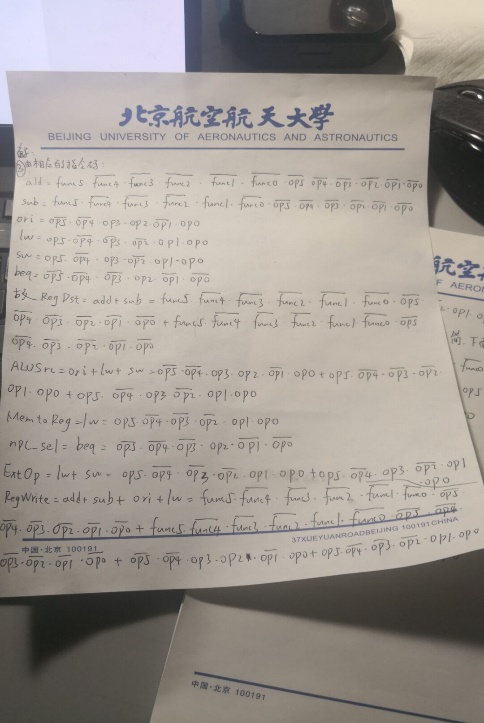 北京航空航天大學
BEIJING UNIVERSITY OF AERONAUTICS AND ASTRONAUTICS
解:
② 由相应的指令码:
add = func5 · f̅u̅n̅c̅4̅ · f̅u̅n̅c̅3̅ · f̅u̅n̅c̅2̅ · f̅u̅n̅c̅1̅ · f̅u̅n̅c̅0̅ · o̅p̅5̅ · o̅p̅4̅ ·
sub = func5 · f̅u̅n̅c̅4̅ · f̅u̅n̅c̅3̅ · f̅u̅n̅c̅2̅ · func1 · f̅u̅n̅c̅0̅ · o̅p̅5̅ · o̅p̅4̅ · o̅p̅3̅ · o̅p̅2̅ · o̅p̅1̅ · o̅p̅0̅
ori = o̅p̅5̅ · o̅p̅4̅ · op3 · op2 · o̅p̅1̅ · op0
lw = op5 · o̅p̅4̅ · o̅p̅3̅ · o̅p̅2̅ · op1 · op0
sw = op5 · o̅p̅4̅ · op3 · o̅p̅2̅ · op1 · op0
beq = o̅p̅5̅ · o̅p̅4̅ · o̅p̅3̅ · op2 · o̅p̅1̅ · o̅p̅0̅
故 RegDst = add + sub = func5 · f̅u̅n̅c̅4̅ · f̅u̅n̅c̅3̅ · f̅u̅n̅c̅2̅ · f̅u̅n̅c̅1̅ · f̅u̅n̅c̅0̅ · o̅p̅5̅
o̅p̅4̅ · o̅p̅3̅ · o̅p̅2̅ · o̅p̅1̅ · o̅p̅0̅ + func5 · f̅u̅n̅c̅4̅ · f̅u̅n̅c̅3̅ · f̅u̅n̅c̅2̅ · func1 · f̅u̅n̅c̅0̅ · o̅p̅5̅
o̅p̅4̅ · o̅p̅3̅ · o̅p̅2̅ · o̅p̅1̅ · o̅p̅0̅
ALUSrc = ori + lw + sw = o̅p̅5̅ · o̅p̅4̅ · op3 · op2 · o̅p̅1̅ · op0 + op5 · o̅p̅4̅ · o̅p̅3̅ · o̅p̅2̅ ·
op1 · op0 + op5 · o̅p̅4̅ · op3 · o̅p̅2̅ · op1 · op0
MemtoReg = lw = op5 · o̅p̅4̅ · o̅p̅3̅ · o̅p̅2̅ · op1 · op0
npc_sel = beq = o̅p̅5̅ · o̅p̅4̅ · o̅p̅3̅ · op2 · o̅p̅1̅ · o̅p̅0̅
ExtOp = lw + sw = op5 · o̅p̅4̅ · o̅p̅3̅ · o̅p̅2̅ · op1 · op0 + op5 · o̅p̅4̅ · op3 · o̅p̅2̅ · op1
· op0
RegWrite = add + sub + ori + lw = func5 · f̅u̅n̅c̅4̅ · f̅u̅n̅c̅3̅ · f̅u̅n̅c̅2̅ · f̅u̅n̅c̅1̅ · f̅u̅n̅c̅0̅ · o̅p̅5̅ ·
o̅p̅4̅ · o̅p̅3̅ · o̅p̅2̅ · o̅p̅1̅ · o̅p̅0̅ + func5 · f̅u̅n̅c̅4̅ · f̅u̅n̅c̅3̅ · f̅u̅n̅c̅2̅ · func1 · f̅u̅n̅c̅0̅ · o̅p̅5̅ · o̅p̅4̅
37XUEYUANROADBEIJING 100191CHINA
中国·北京 100191
o̅p̅3̅ · o̅p̅2̅ · o̅p̅1̅ · o̅p̅0̅ + o̅p̅5̅ · o̅p̅4̅ · op3 · op2 · o̅p̅1̅ · op0 + op5 · o̅p̅4̅ · o̅p̅3̅ · o̅p̅2̅ · op1 · op0
航空
F AERON
中国·北京 100191